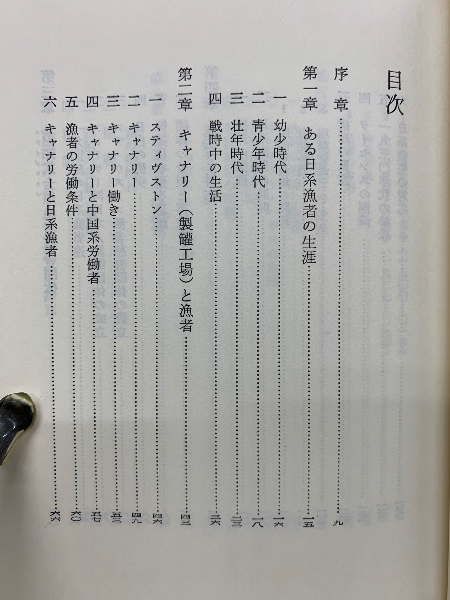 目次
序章……九
第一章 ある日系漁者の生涯……一五
一 幼少時代……一六
二 青少年時代……一八
三 壮年時代……二三
四 戦時中の生活……三六
第二章 キャナリー(製罐工場)と漁者……四三
一 スティヴストン……四六
二 キャナリー……四九
三 キャナリー働き……五三
四 キャナリーと中国系労働者……五七
五 漁者の労働条件……六〇
六 キャナリーと日系漁者……六六